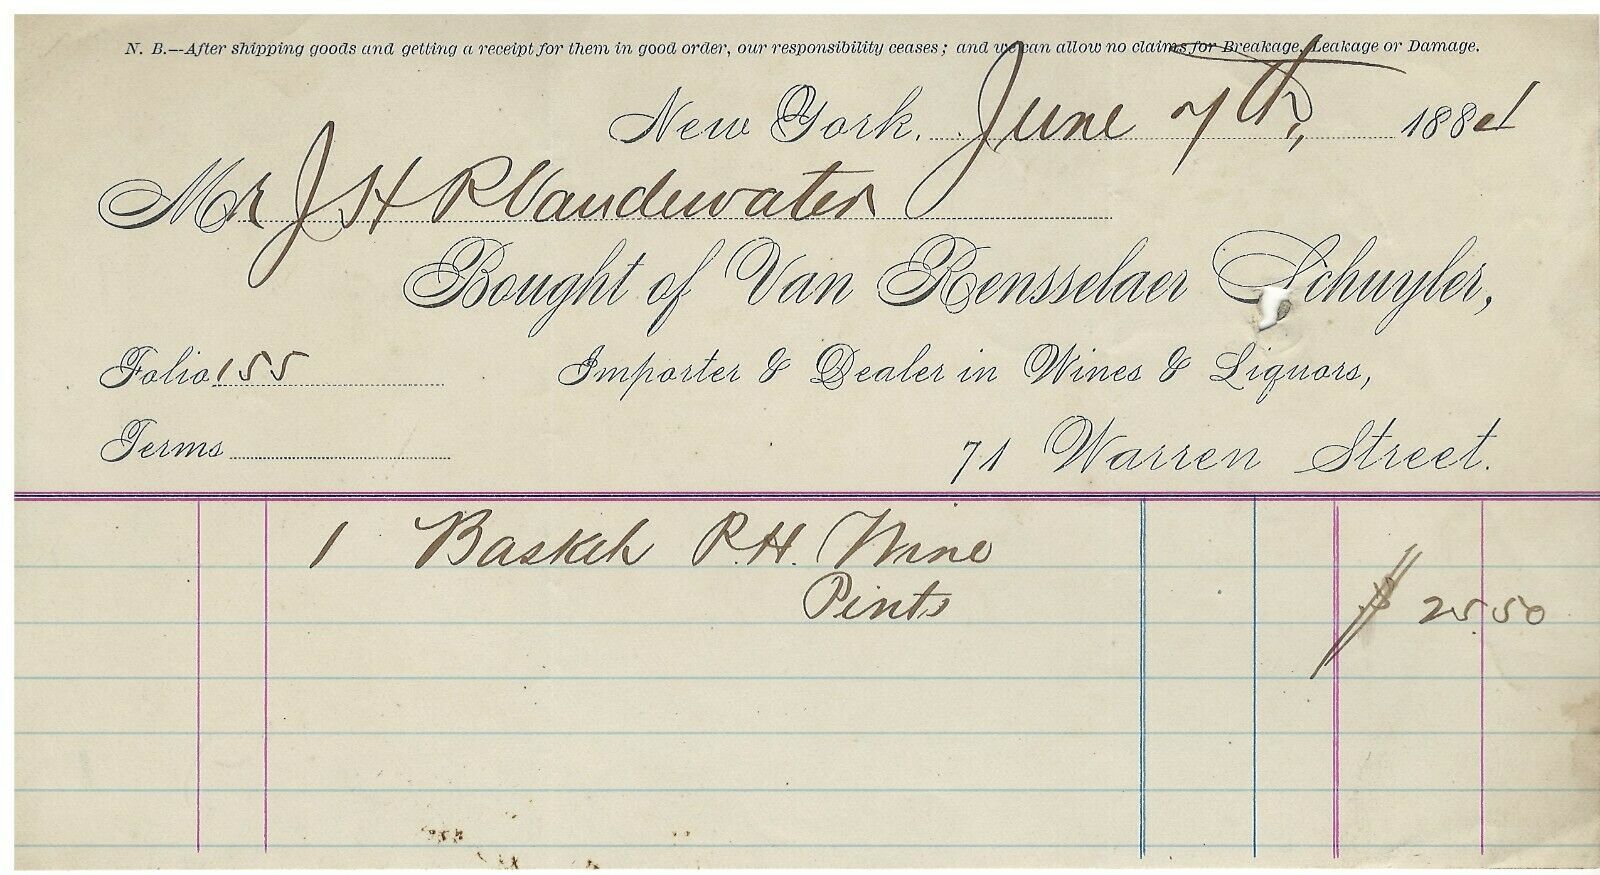 N. B.—After shipping goods and getting a receipt for them in good order, our responsibility ceases; and we can allow no claims for Breakage, Leakage or Damage.
New York, June 7th, 1884
Mr J H R Vandewater
Bought of Van Rensselaer Schuyler,
Folio 155 Importer & Dealer in Wines & Liquors,
Terms 71 Warren Street.
1 Basket P.H. Wine
Pints $ 25.50